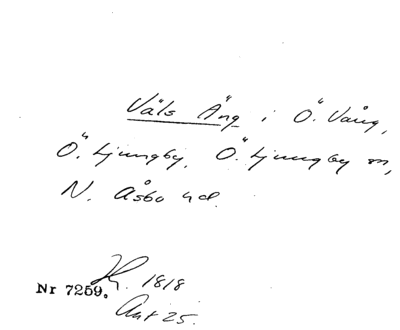 Väls Äng i Ö. Vång,
Ö. Ljungby, Ö. Ljungby sn,
N. Åsbo hd.
1818
Nr 7259.
Akt 25.